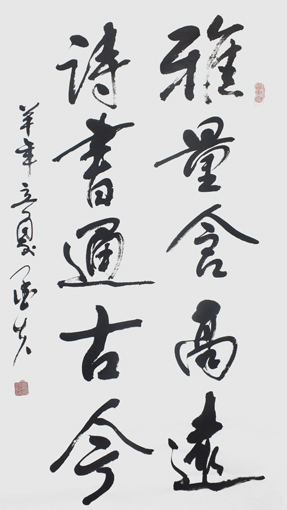 雅量含高遠
詩書通古今
羊年立夏